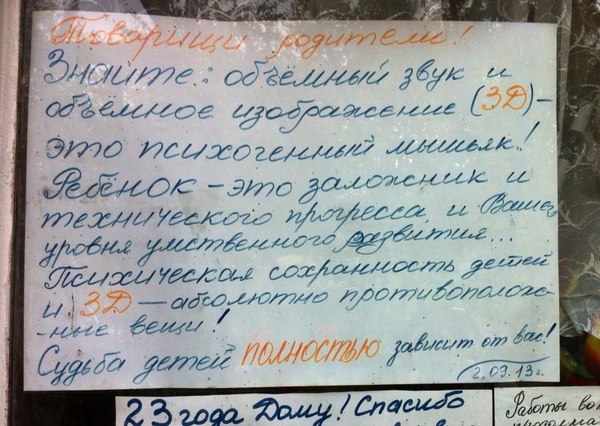 Товарищи родители!
Знайте: объёмный звук и
объёмное изображение (3Д)-
это психогенный мышьяк!
Ребёнок - это заложник и
технического прогресса, и Вашего
уровня умственного развития...
Психическая сохранность детей
и 3Д — абсолютно противополож-
-ные вещи!
Судьба детей ПОЛНОСТЬЮ зависит от вас!
2.09.13г.
23 года Дому! Спасибо
Работы